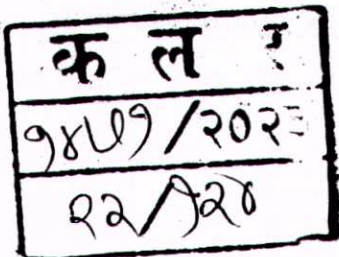 क ल र
१४५१/२०२
२२/१२४